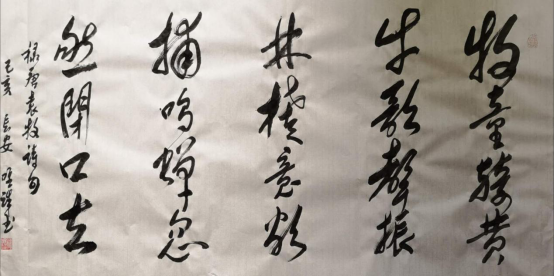 牧童騎黃
牛歌聲振
林樾意欲
捕鳴蟬忽
然閉口立
袁枚詩句
己亥 長安 书